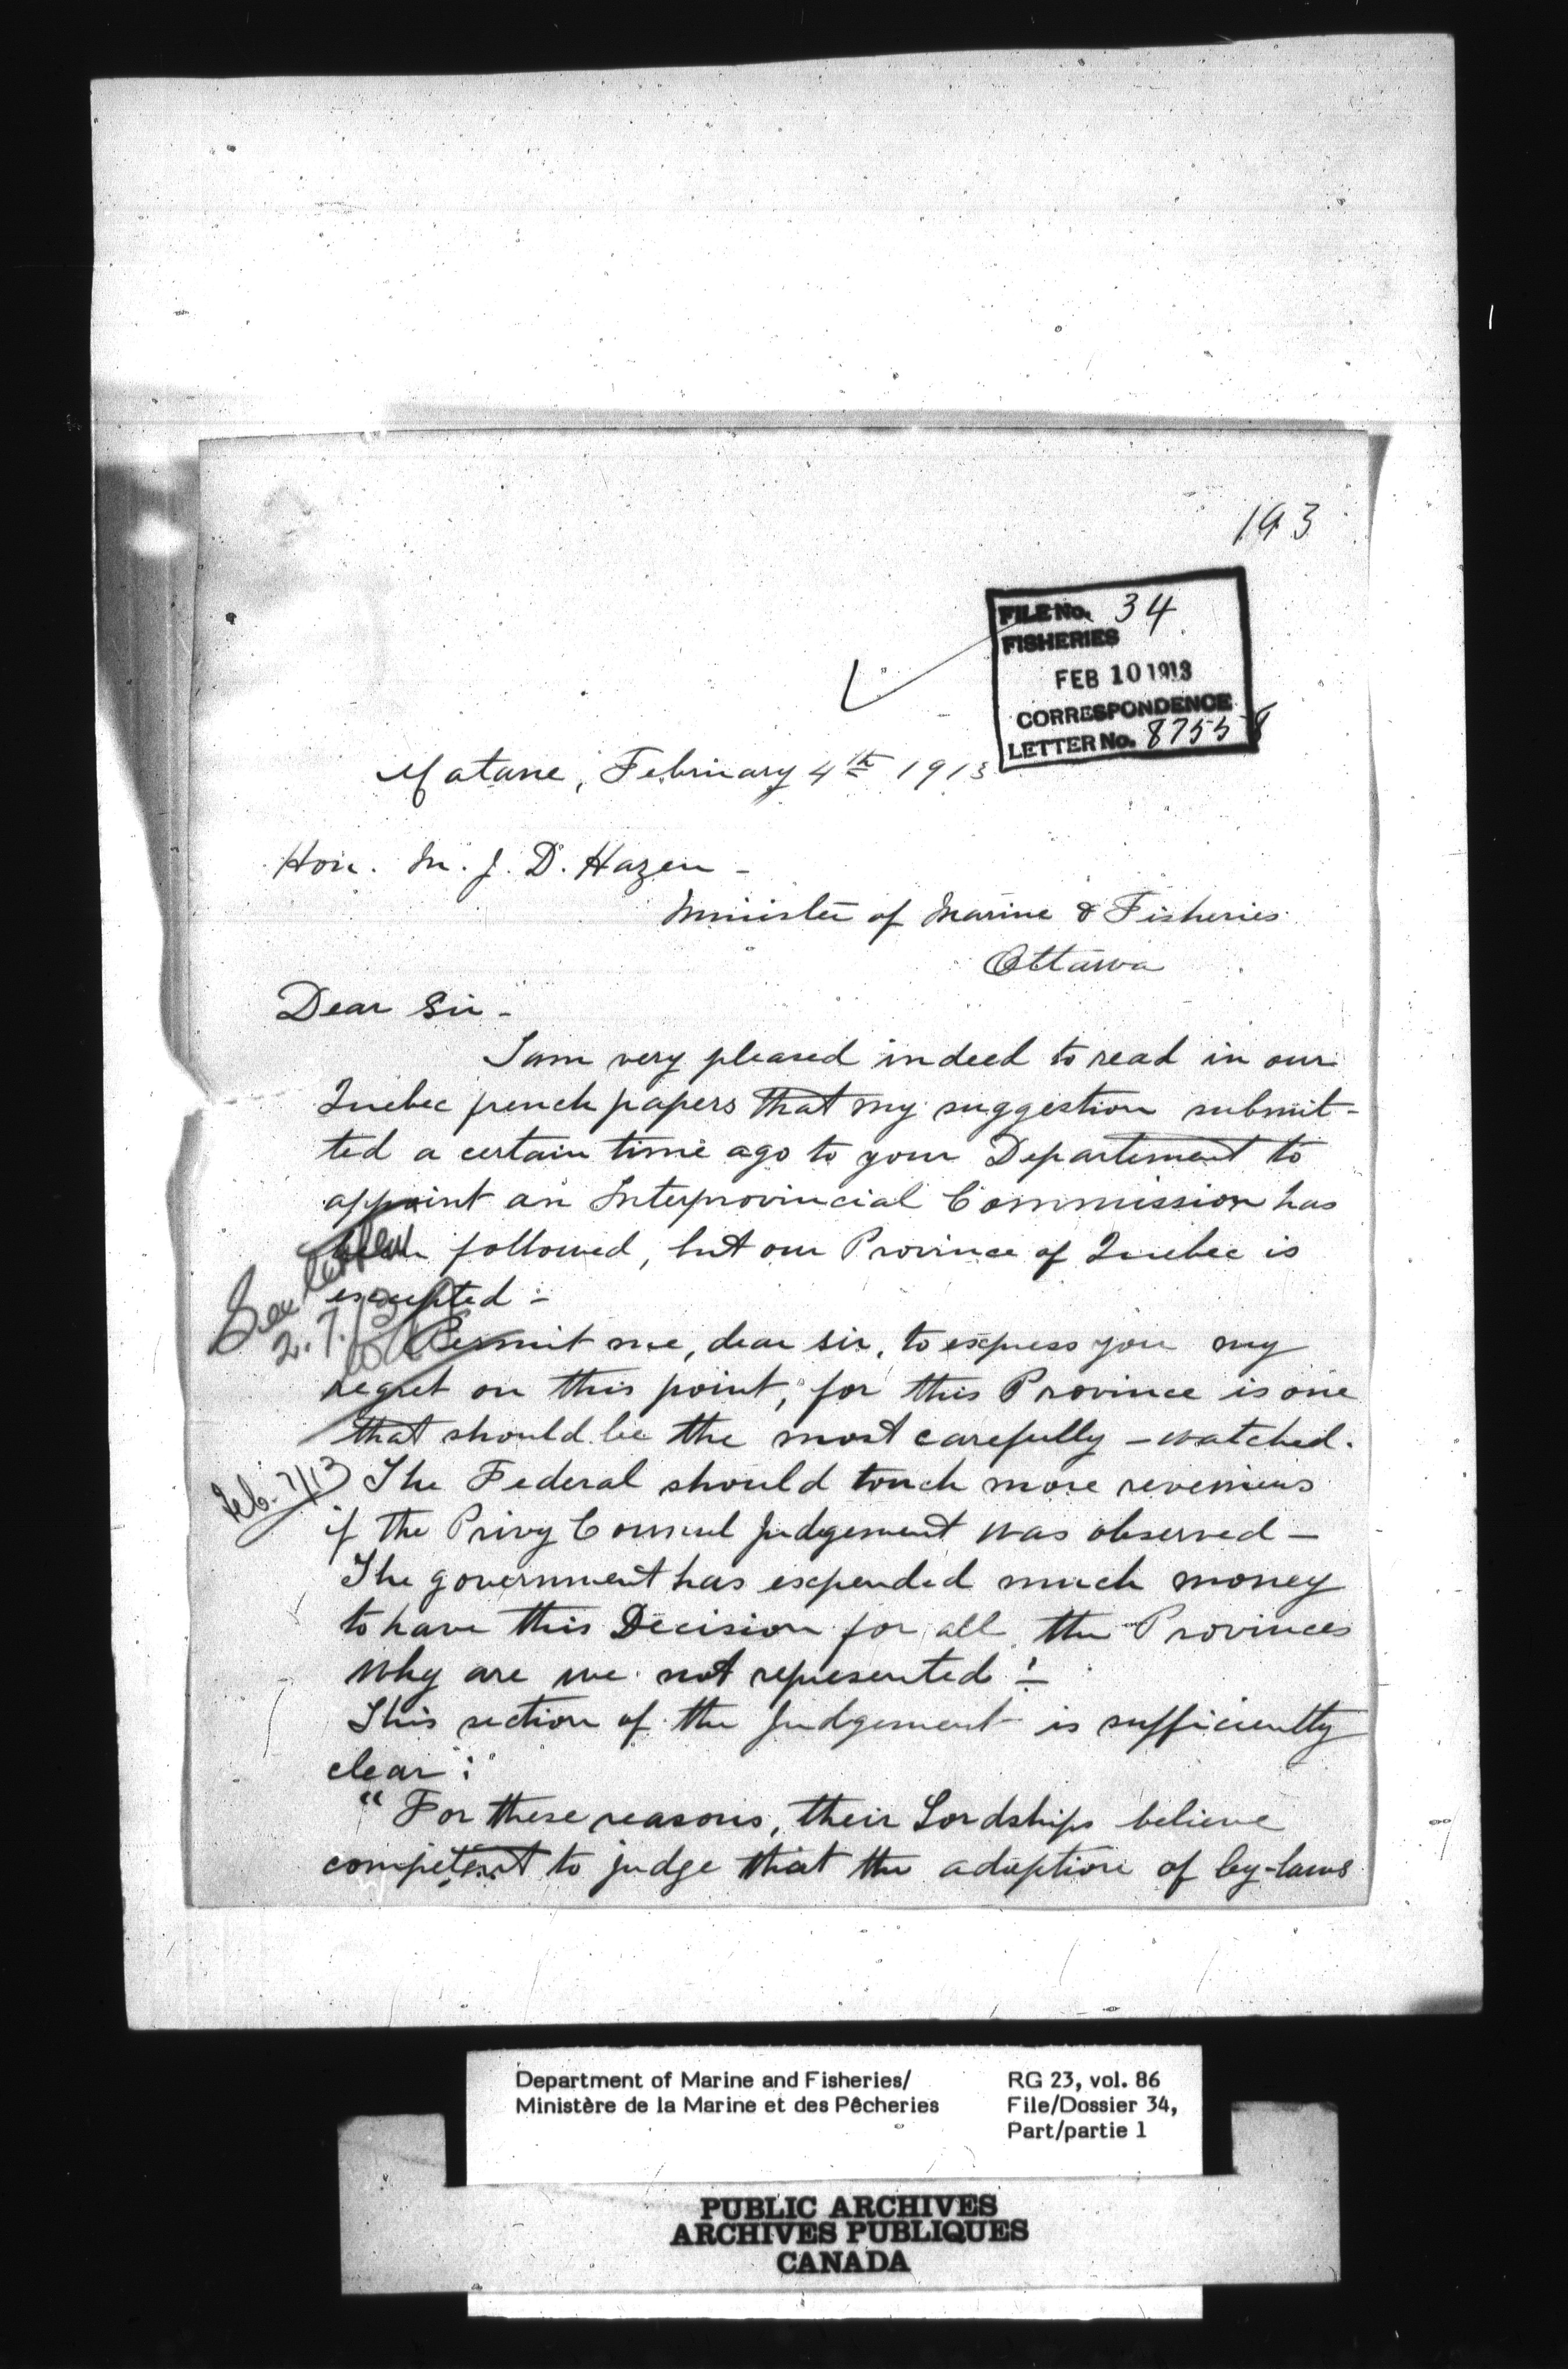 193
FILE No. 34
FISHERIES
FEB 10 1913
CORRESPONDENCE
LETTER No. 87558
Matane, February 4th 1913
Hon. M. J. D. Hazen -
Minister of Marine & Fisheries
Ottawa
Dear Sir -
I am very pleased indeed to read in our
Quebec french papers that my suggestion submit-
ted a certain time ago to your Departement to
appoint an Interprovincial Commission has
been followed, but our Province of Quebec is
excepted -
See letter
2.7.13
Permit me, dear sir, to express you my
regret on this point, for this Province is one
that should be the most carefully - watched.
Feb. 7/13
The Federal should touch more revenues
if the Privy Council judgement was observed -
The government has expended much money
to have this Decision for all the Provinces
Why are we not represented ! -
This section of the judgement is sufficiently
clear :
" For these reasons, their Lordships believe
competent to judge that the adoption of by-laws
Department of Marine and Fisheries/
Ministère de la Marine et des Pêcheries
RG 23, vol. 86
File/Dossier 34,
Part/partie 1
PUBLIC ARCHIVES
ARCHIVES PUBLIQUES
CANADA